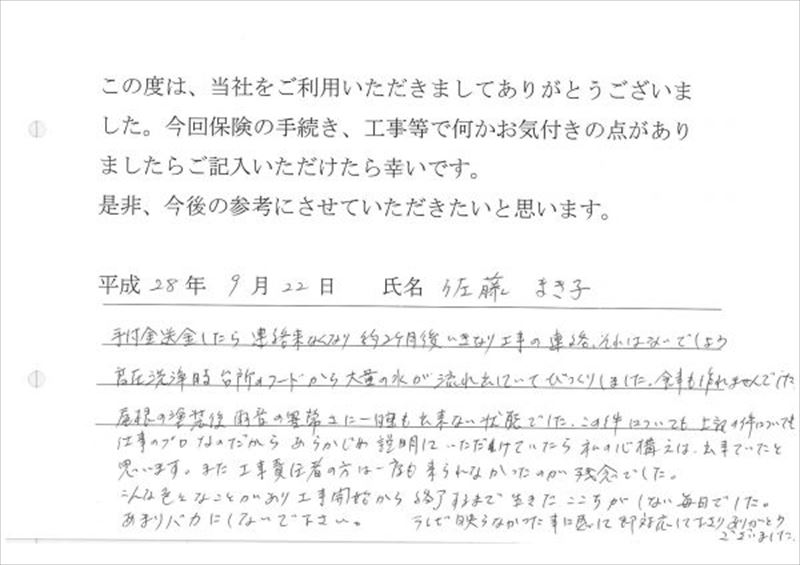 この度は、当社をご利用いただきましてありがとうございま
した。今回保険の手続き、工事等で何かお気付きの点があり
ましたらご記入いただけたら幸いです。
是非、今後の参考にさせていただきたいと思います。
平成 28 年 9 月 22 日 氏名 佐藤 まき子
手付金送金したら 連絡来なくなり 約2ヶ月後いきなり工事の連絡、それはないでしょう
高圧洗浄時 台所のフードから大量の水が流れ出ていてびっくりしました。食事も作れませんでした
屋根の塗装後 雨音の異常さに一睡も出来ない状態でした。この件についても 上記の件についても
仕事のプロなのだから あらかじめ説明していただけていたら 私の心構えは出来ていたと
思います。また 工事責任者の方は一度も来られなかったのが残念でした。
こんな色々なことがあり工事開始から 終了するまで 生きた ここちがしない毎日でした。
あまりバカにしないで下さい。 テレビ映らなかった事に関して即対応して下さりありがとう
ございました。